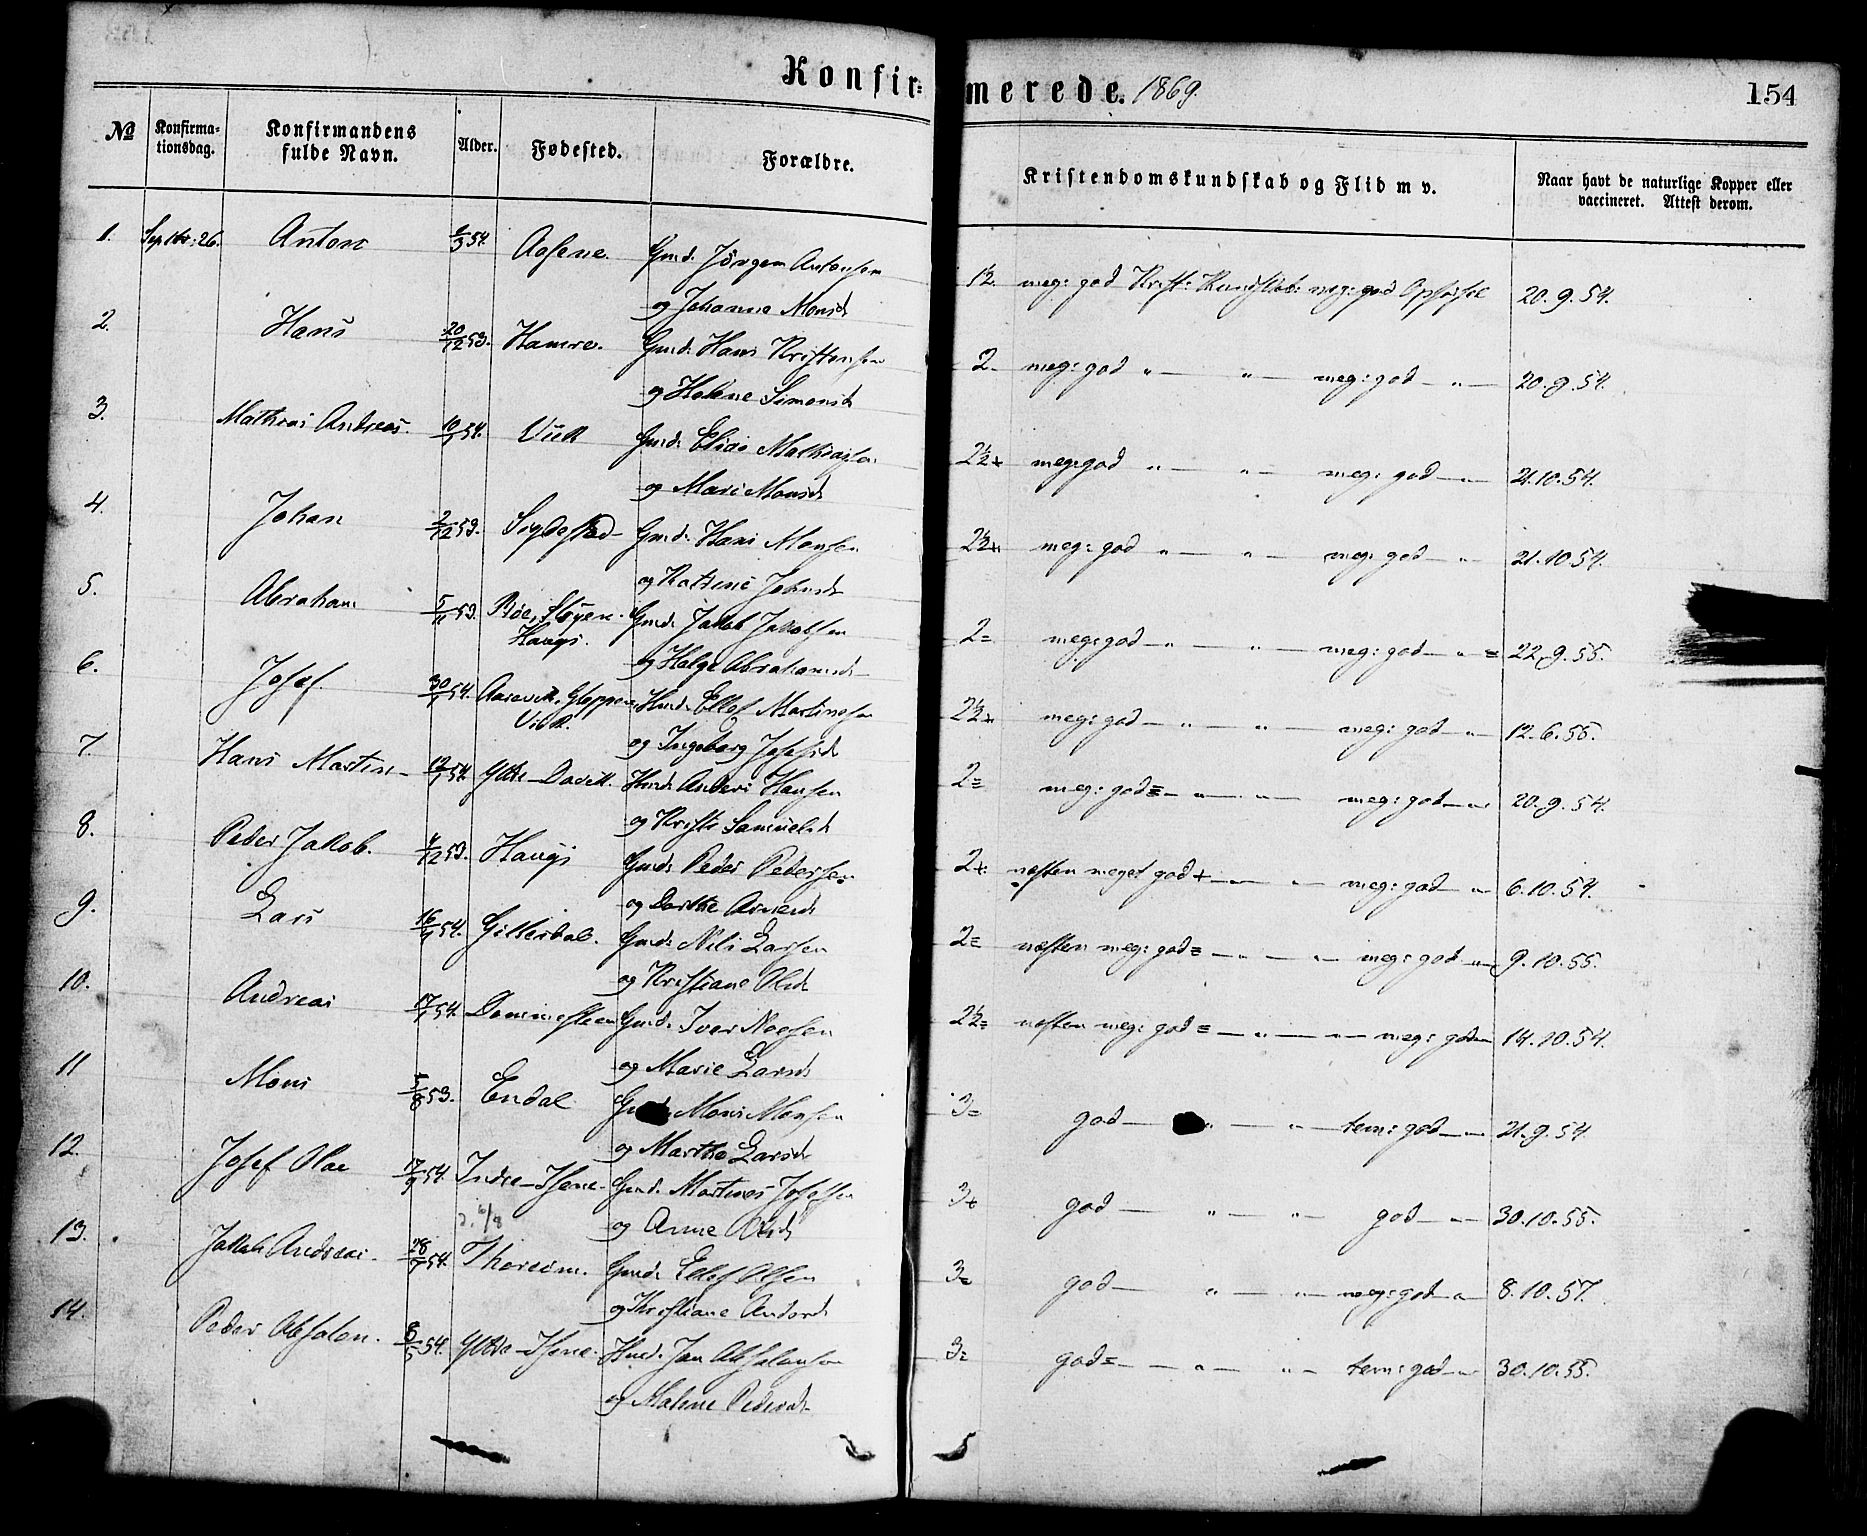 Konfir=merede. 1869. 154
No Konfirma-tionsdag. Konfirmandens fulde Navn. Alder. Fødested. Forældre. Kristendomskundskab og Flid m v. Naar havt de naturlige Kopper eller vaccineret. Attest derom.
1. Septbr: 26. Anton 54. Aasene. Gmd. Jörgen Antonsen 1 2. meg: god Krist: Kundskab: meg: god Opførsel 20.9.54.
og Johanna Monsd
2. Hans 20/12 53. Hamre. Gmd. Hans Kristensen 2- meg: god " — " — meg: god — " — 20.9.54.
og Helene Simonsd
3. Mathias Andreas. 10/1 54. Viik Gmd. Elias Mathiassen 2½+ meg: god " — " — meg: god — " 21.10.54.
og Mari Monsd
4. Johan 2/12 53. Sigdestad Gmd. Hans Monsen 2½+ meg: god " — " — meg: god — " 21.10.54.
og Katrine Johnsd
5. Abraham 5/11 53. Böe, Støyen Gmd. Jakob Jakobsen 2= meg: god — " — " — meg: god — " = 22.9.55.
Haugs. og Helge Abrahamsd
6. Josef. 30/1 54. Aarevik, Gloppen Hmd. Ellef Martinsen 2½+ meg: god — " — " — meg: god — " 12.6.55.
Viik. og Ingeborg Josefsd
7. Hans Martin 12/1 54. Ytte-Davik. Hmd. Anders Hansen 2= meg: god = — " — " — meg: god — " 20.9.54.
og Kristi Samuelsd
8. Peder Jakob. 4/12 53. Haugs Gmd. Peder Pedersen 2+ næsten meget god + — " — " — meg: god — " 6.10.54.
og Dorthe Arnesd
9. Lars 16/1 54. Gilleidal. Gmd. Nils Larsen 2= næsten meg: god = — " — " — meg: god — " 9.10.55.
og Kristiane Olsd
10. Andreas 17/1 54. Dommesteen Gmd. Iver Noesen 2½= næsten meg: god = — " — " — meg: god — 14.10.54.
og Marie Larsd
11 Mons 5/8 53. Endal Gmd. Mons Monsen 3= god — " — " — tem: god — " 21.9.54.
og Marthe Larsd
12. Josef Olae 17/9 54. Indre-Hene. Gmd. Martines Josefsen 3+ god — " — " — god — " 30.10.55.
6/8 og Anne Olsd
13. Jakob Andreas. 28/7 54. Thoreim. Gmd. Ellef Olsen 3= god — " — " — meg: god — " 8.10.57.
og Kristiane Andersd
14. Peder Absalon. 8/5 54. Ytte-Hene. Hmd. Jan Absalonsen 3= god = — " — " — tem: god — " 30.10.55.
og Malene Pedersd